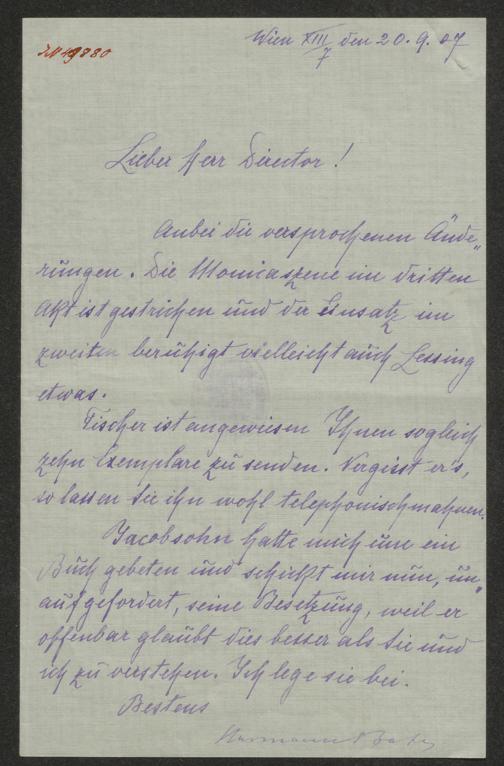 No 49880
Wien XIII/7 den 20. 9. 07
Lieber Herr Director!
Anbei die versprochenen Ände„
rungen. Die Monicaszene im dritten
Akt ist gestrichen und der Einsatz im
zweiten beruhigt vielleicht auch Lessing
etwas.
Fischer ist angewiesen Ihnen sogleich
zehn Exemplare zu senden. Vergisst er's,
so lassen Sie ihn wohl telephonisch mahnen.
Jacobsohn hatte mich um ein
Buch gebeten und schickt mir nun, un„
aufgefordert, seine Besetzung, weil er
offenbar glaubt dies besser als Sie und
ich zu verstehen. Ich lege sie bei.
Bestens
Hermann Bahr